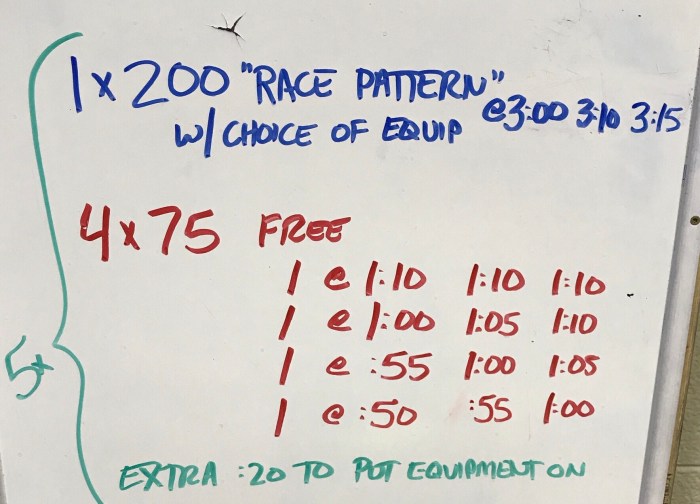 1 x 200 "RACE PATTERN"
w/ CHOICE OF EQUIP @3:00 3:10 3:15
4 x 75 FREE
1 @ 1:10 1:10 1:10
1 @ 1:00 1:05 1:10
1 @ :55 1:00 1:05
1 @ :50 :55 1:00
5x
EXTRA :20 TO PUT EQUIPMENT ON